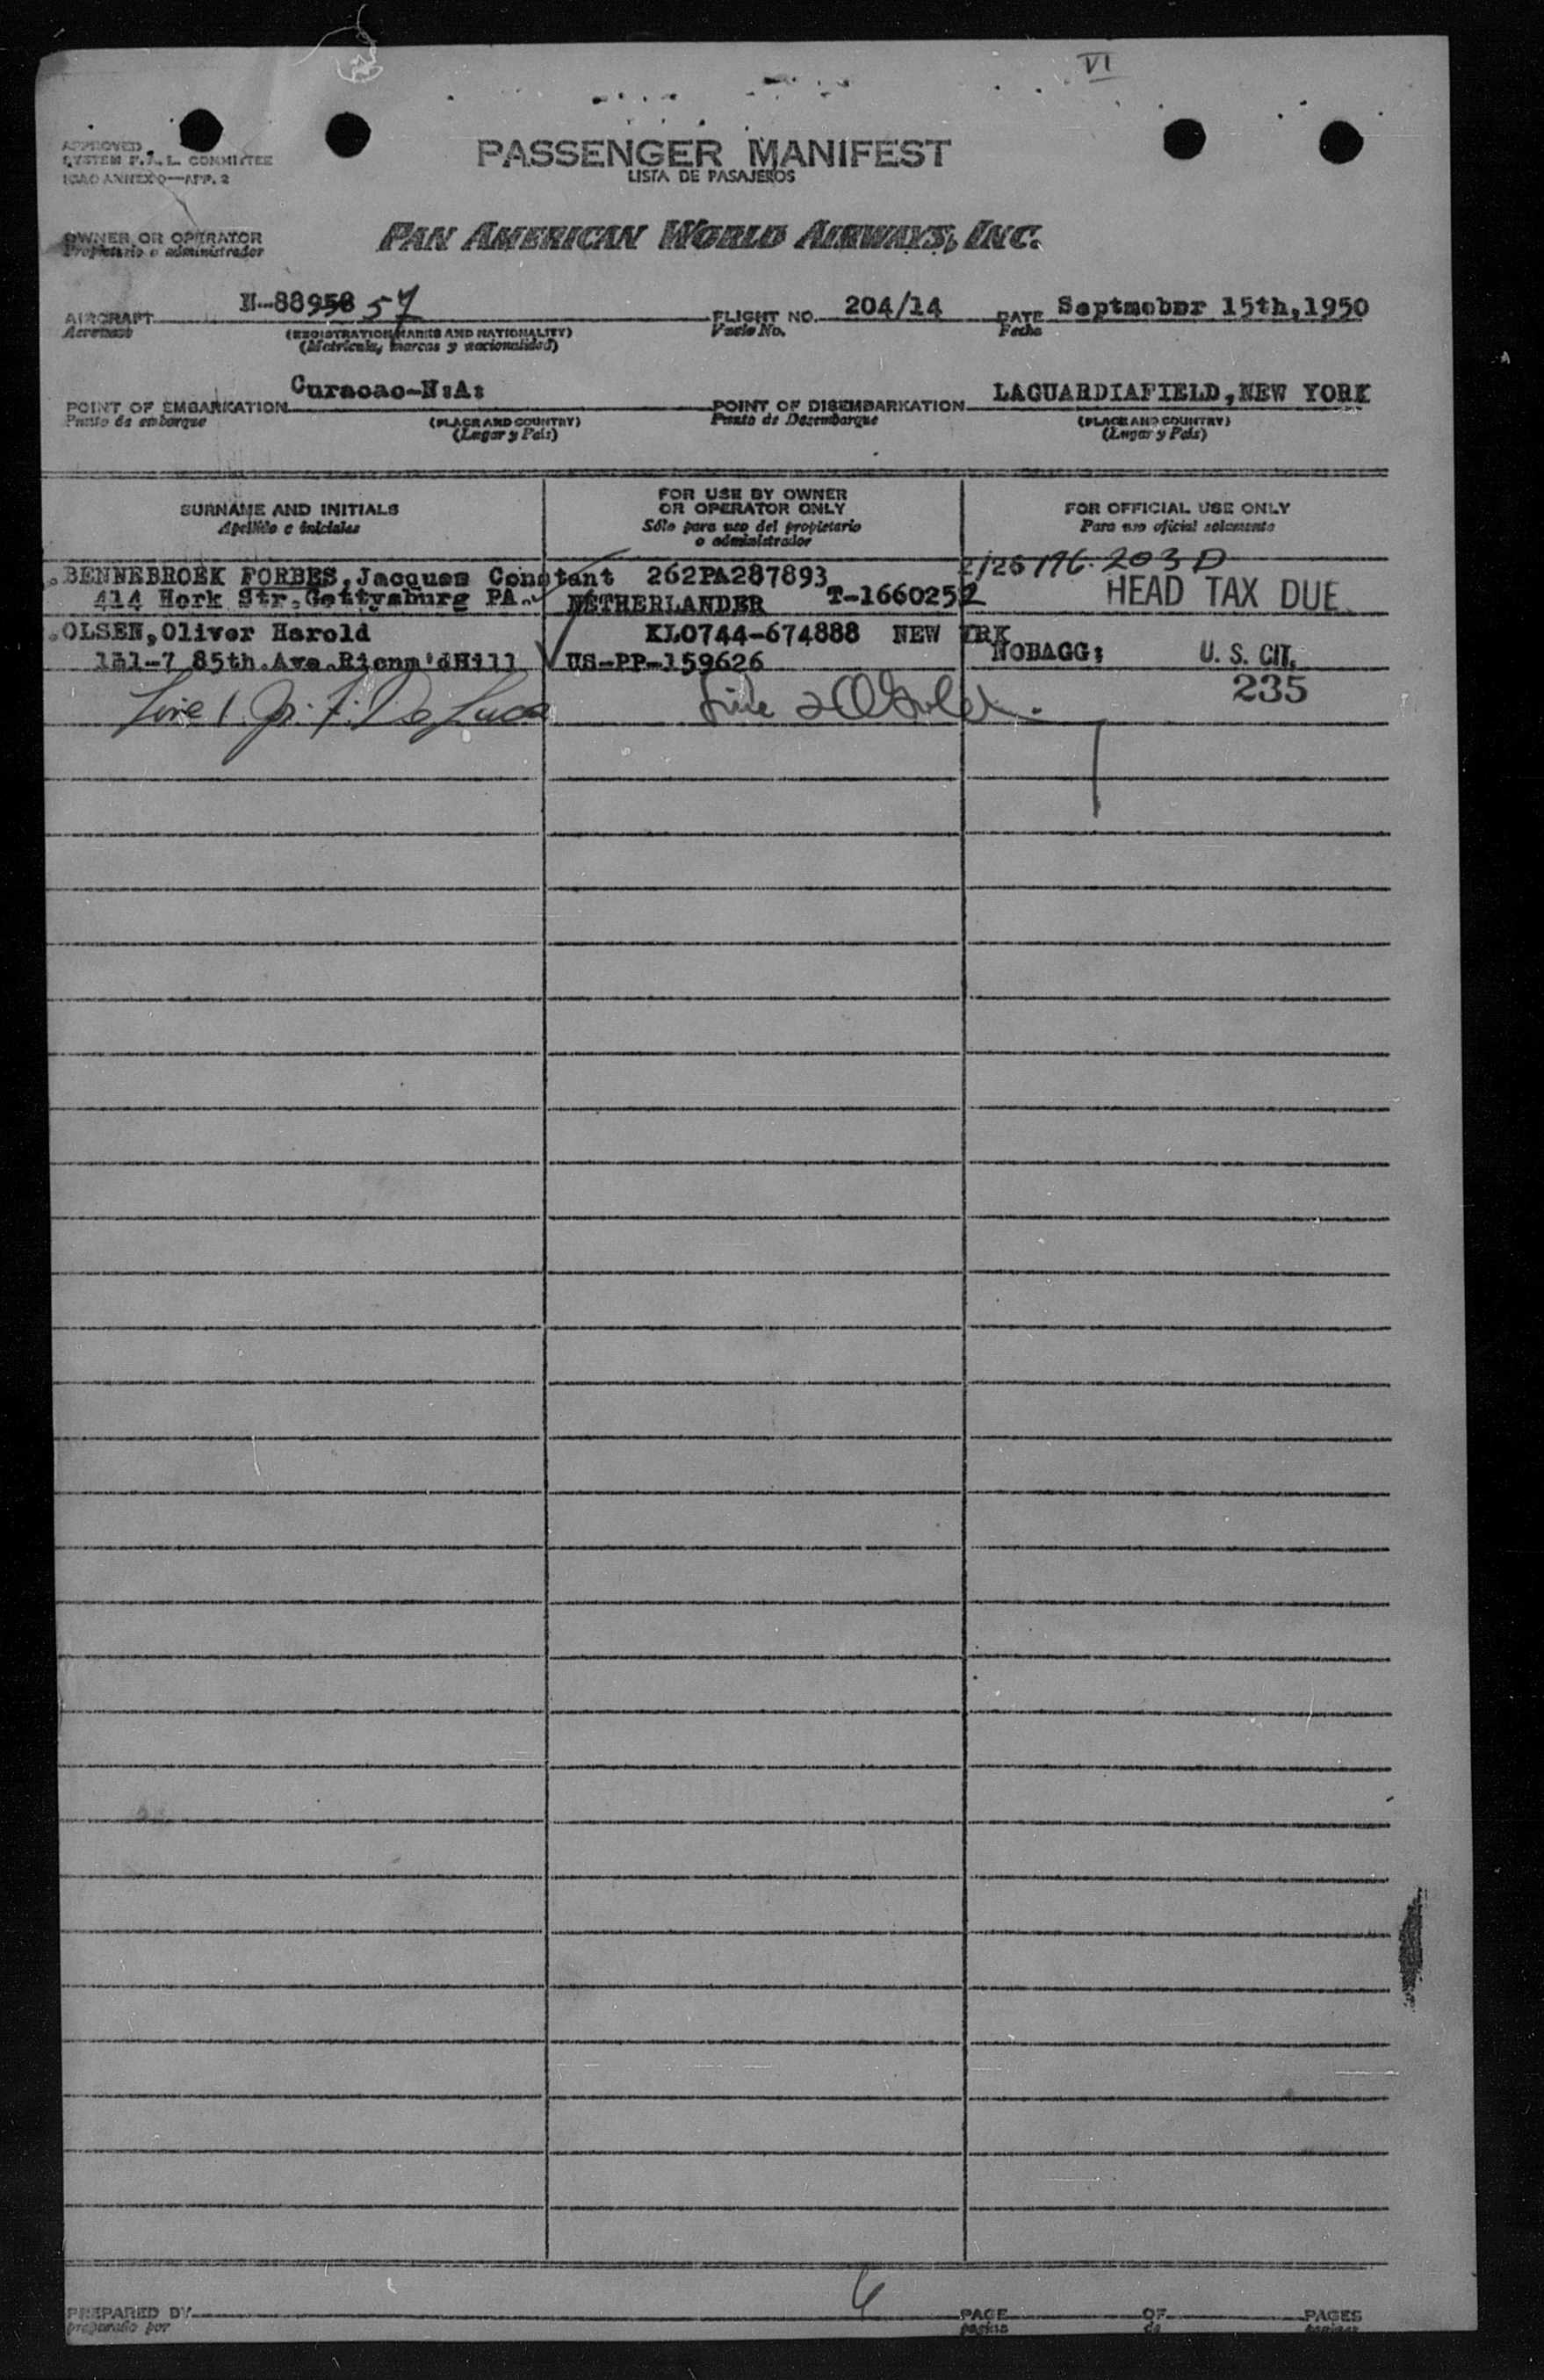 VI
APPROVED
SYSTEM F.A.L. COMMITTEE
ICAO ANNEX 9—APP. 2
PASSENGER MANIFEST
LISTA DE PASAJEROS
OWNER OR OPERATOR
Propietario o administrador
PAN AMERICAN WORLD AIRWAYS, INC.
AIRCRAFT N-88958 57 FLIGHT NO. 204/14 DATE Septmober 15th,1950
Aeronave (REGISTRATION MARKS AND NATIONALITY) Vuelo No. Fecha
(Matrícula, marcas y nacionalidad)
POINT OF EMBARKATION Curacao-N:A: POINT OF DISEMBARKATION LAGUARDIAFIELD,NEW YORK
Punto de embarque (PLACE AND COUNTRY) Punto de Desembarque (PLACE AND COUNTRY)
(Lugar y País) (Lugar y País)
SURNAME AND INITIALS FOR USE BY OWNER OR OPERATOR ONLY FOR OFFICIAL USE ONLY
Apellido e iniciales Sólo para uso del propietario o administrador Para uso oficial solamente
.BENNEBROEK FORBES,Jacques Constant 262PA287893 203 D
414 Hork Str.Gettysburg PA. NETHERLANDER T-1660252 HEAD TAX DUE
.OLSEN,Oliver Harold KLO744-674888 NEW YRK
85th.Ave.Ricnm'dHill US-PP-159626 NOBAGG: U. S. CIT.
235
Line 1. Line 2
6
PREPARED BY PAGE OF PAGES
preparado por página de páginas